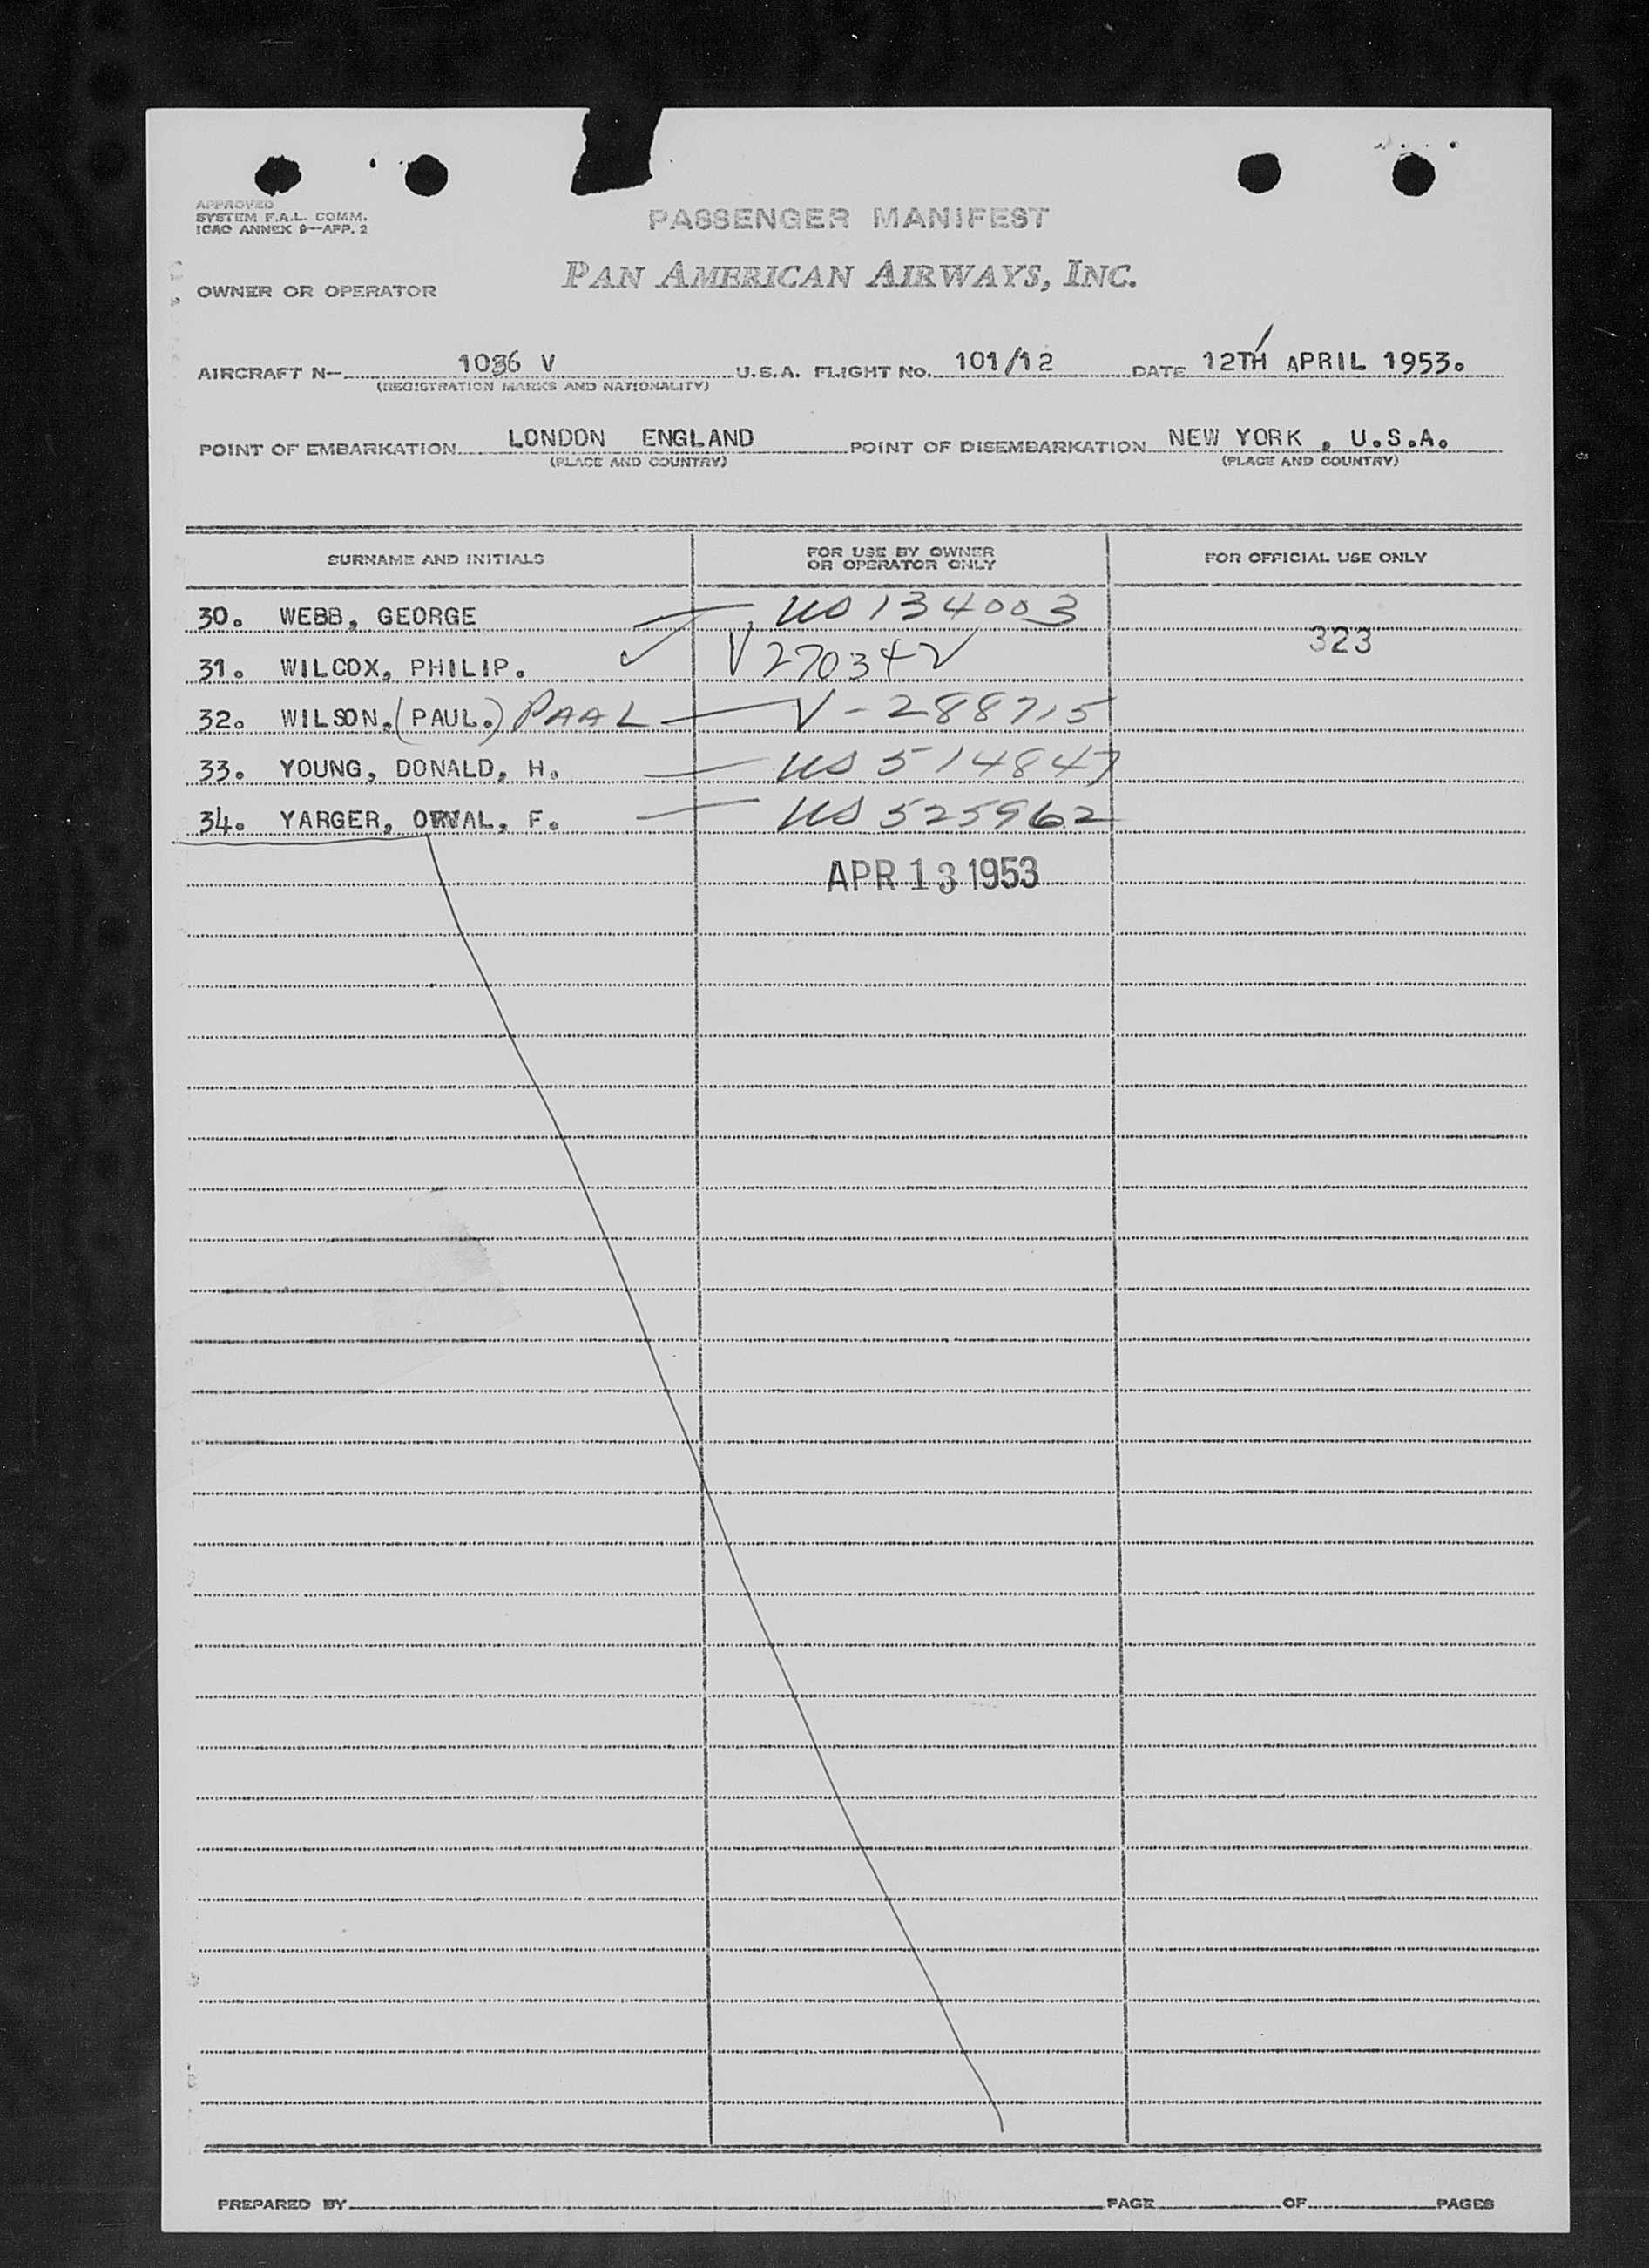 APPROVED
SYSTEM F.A.L. COMM.
ICAO ANNEX 9—APP. 2
PASSENGER MANIFEST
OWNER OR OPERATOR PAN AMERICAN AIRWAYS, INC.
AIRCRAFT N— 1036 V U.S.A. FLIGHT NO. 101/12 DATE 12TH APRIL 1953.
(REGISTRATION MARKS AND NATIONALITY)
POINT OF EMBARKATION LONDON ENGLAND POINT OF DISEMBARKATION NEW YORK , U.S.A.
(PLACE AND COUNTRY) (PLACE AND COUNTRY)
SURNAME AND INITIALS FOR USE BY OWNER OR OPERATOR ONLY FOR OFFICIAL USE ONLY
30. WEBB, GEORGE US 134003
323
31. WILCOX, PHILIP. V270342
32. WILSON, (PAUL.) PAAL V-288715
33. YOUNG, DONALD, H. US 514847
34. YARGER, ORVAL, F. US 525962
APR 13 1953
PREPARED BY PAGE OF PAGES